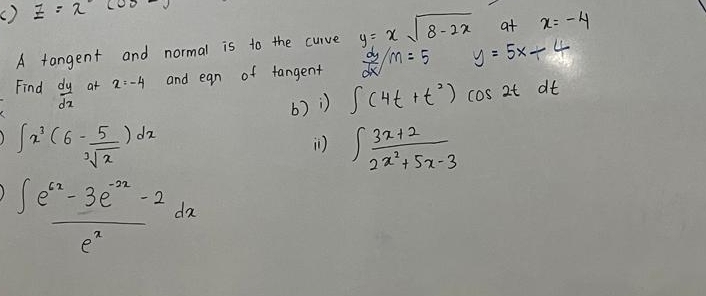 c) Z = x
A tangent and normal is to the curve y = x √(8-2x) at x = -4
Find dy/dx at x=-4 and eqn of tangent dy/dx/m = 5 y = 5x+4
b) i) ∫ (4t + t²) cos 2t dt
∫ x³ (6 - 5/∛x) dx
ii) ∫ (3x+2)/(2x² + 5x - 3)
∫ (e^6x - 3e^-2x - 2)/e^x dx